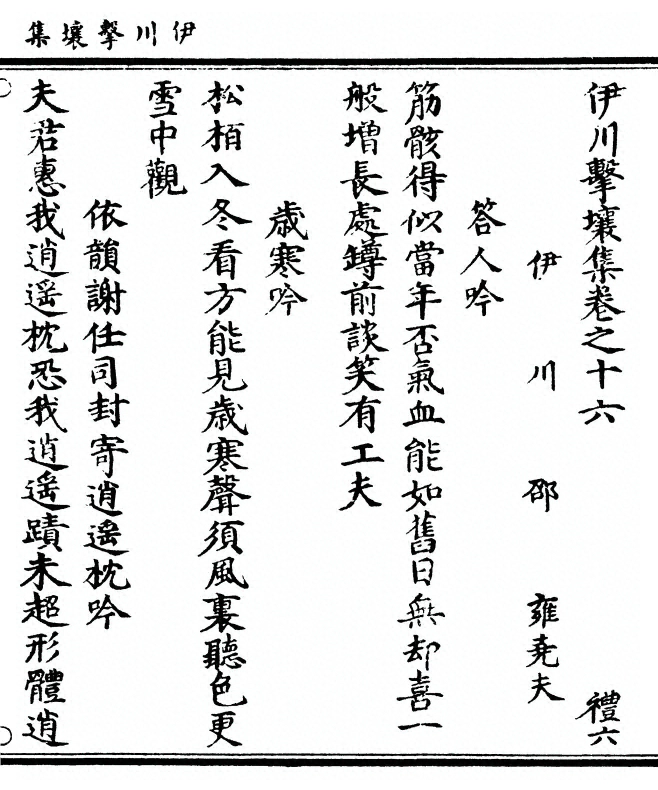 伊川擊壤集
伊川擊壤集卷之十六 禮六
伊川邵雍堯夫
答人吟
筋骸得似當年否氣血能如舊日無却喜一
般增長處罇前談笑有工夫
歲寒吟
松栢入冬看方能見歲寒聲須風裏聽色更
雪中觀
依韻謝任司封寄逍遥枕吟
夫君惠我逍遥枕恐我逍遥蹟未超形體逍